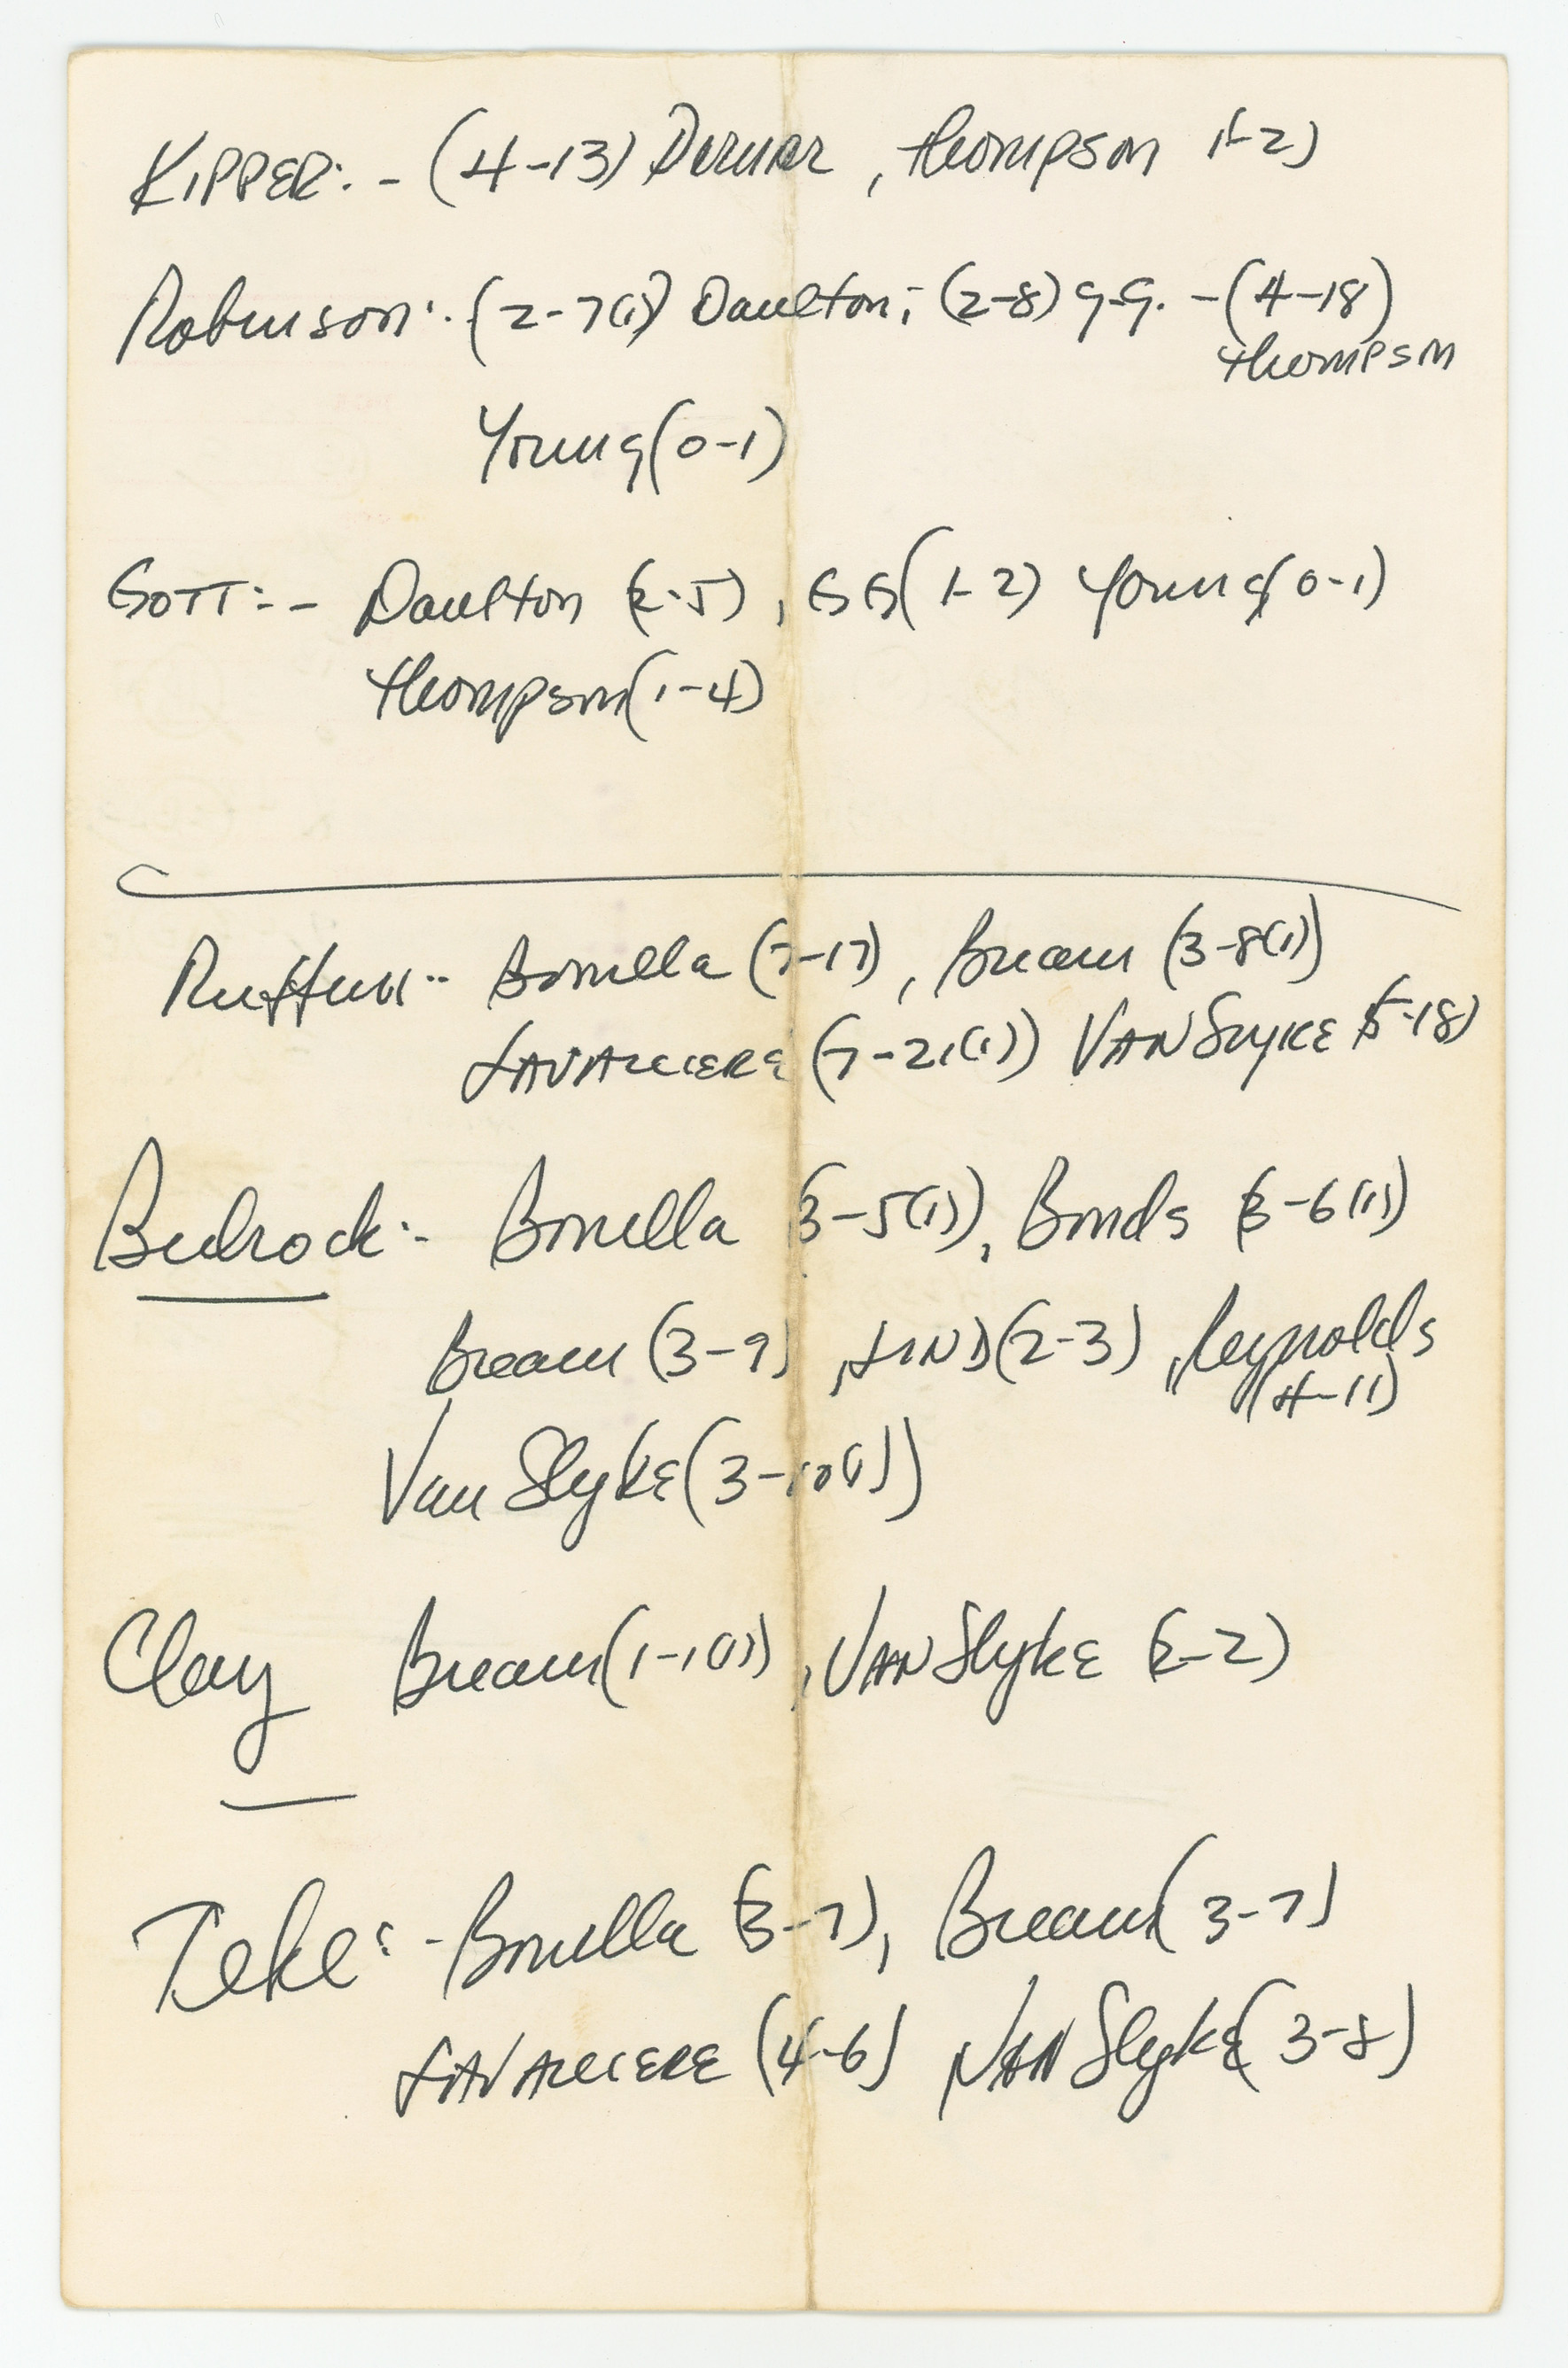 KIPPER:- (4-13) Dernier, Thompson 1-2)
Robinson:- (2-7(1)) Daulton; (2-8) G.G. - (4-18)
Thompson
Young (0-1)
GOTT:- Daulton (2-5), GG (1-2) Young (0-1)
Thompson (1-4)
Ruffin:- Bonilla (7-17), Bream (3-8(1))
LAVALLIERE (7-21(1)) VAN Slyke (5-18)
Bedrock:- Bonilla (3-5(1)), Bonds (3-6(1))
Bream (3-9), LIND (2-3), Reynolds
(4-11)
Van Slyke (3-10(1))
Clay Bream (1-1(1)), VAN Slyke (2-2)
Teke:- Bonilla (3-7), Bream (3-7)
LAVALLIERE (4-6) VAN Slyke (3-8)